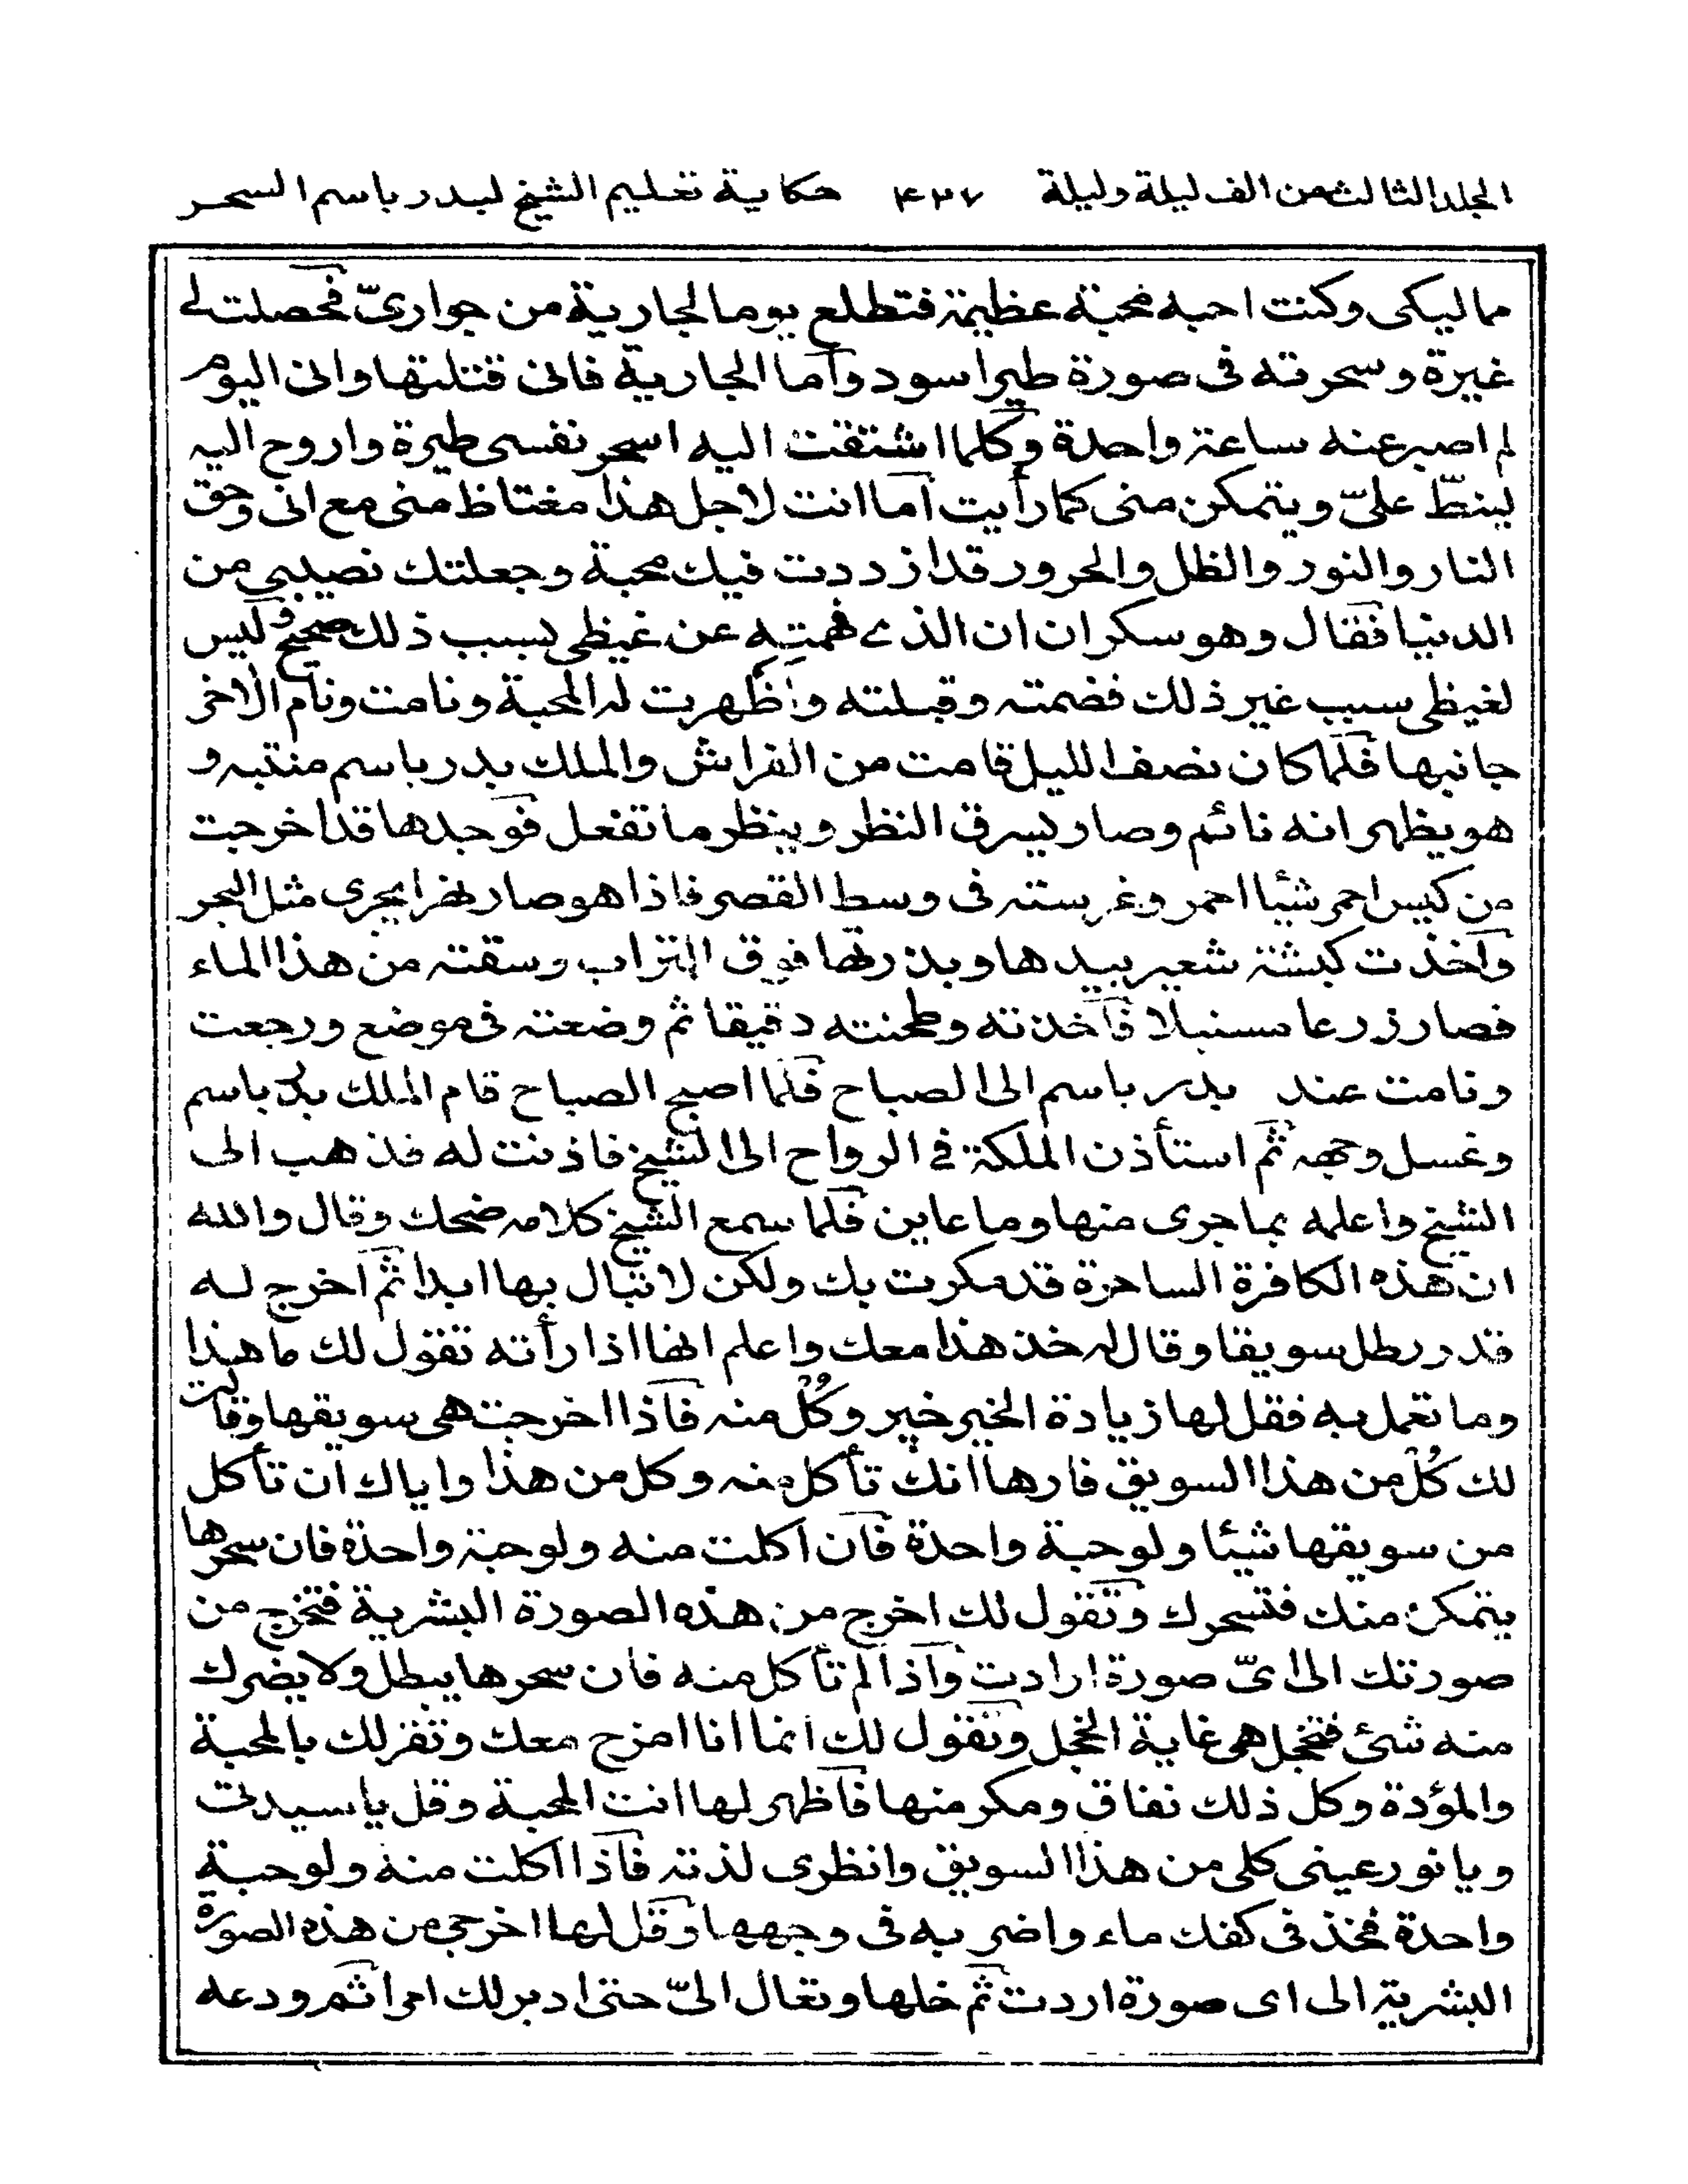 المجلد الثالث من الف ليلة وليلة ٤٣٧ حكاية تعليم الشيخ لبدر باسم السحر
مماليكى وكنت احبه محبة عظيمة فتطلع يوما لجارية من جوارىّ فحصلت لے
غيرة وسحرته فى صورة طير اسود وأما الجارية فانى قتلتها وانى اليوم
لم اصبر عنه ساعة واحدة وكلما اشتقت اليه اسحر نفسى طيرة واروح اليه
لينطّ علىّ ويتمكن منى كما رأيت أما انت لاجل هذا مغتاظ منى مع انى وحق
النار والنور والظل والحرور قد ازددت فيك محبة وجعلتك نصيبى من
الدنيا فقال وهو سكران ان الذے فهمتيه عن غيظى بسبب ذلك صحيح وليس
لغيظى سبب غير ذلك فضمته وقبلته وأظهرت له المحبة ونامت ونام الاخر
جانبها فلما كان نصف الليل قامت من الفراش والملك بدر باسم منتبه و
هو يظهر انه نائم وصار يسرق النظر وينظر ما تفعل فوجدها قد اخرجت
من كيس احمر شيئا احمر وغرسته فى وسط القصر فاذا هو صار نهرا يجرى مثل البحر
وأخذت كبشة شعير بيدها وبذرتها فوق التراب وسقته من هذا الماء
فصار زرعا مسنبلا فأخذته وطحنته دقيقا ثم وضعته فى موضع ورجعت
ونامت عند بدر باسم الى الصباح فلما اصبح الصباح قام الملك بدر باسم
وغسل وجهه ثم استأذن الملكة فے الرواح الى الشيخ فاذنت له فذهب الى
الشيخ واعلمه بما جرى منها وما عاين فلما سمع الشيخ كلامه ضحك وقال والله
ان هذه الكافرة الساحرة قد مكرت بك ولكن لا تبال بها ابدا ثم أخرج له
قدر رطل سويقا وقال له خذ هذا معك واعلم انها اذا رأته تقول لك ما هذا
وما تعمل به فقل لها زيادة الخير خير وكُلْ منه فأذا اخرجت هى سويقها وقالت
لك كُلْ من هذا السويق فارها انك تأكل منه وكل من هذا واياك ان تأكل
من سويقها شيئا ولو حبة واحدة فأن اكلت منه ولو حبة واحدة فان سحرها
يتمكن منك فتسحرك وتقول لك اخرج من هذه الصورة البشرية فتخرج من
صورتك الى اىّ صورة ارادت وأذا لم تأكل منه فان سحرها يبطل ولا يضرك
منه شئ فتخجل هى غاية الخجل وتقول لك انما انا امزح معك وتقر لك بالمحبة
والمؤدة وكل ذلك نفاق ومكر منها فأظهر لها انت المحبة وقل يا سيدتى
ويا نور عينى كلى من هذا السويق وانظرى لذته فأذا اكلت منه ولو حبة
واحدة فخذ فى كفك ماء واضرب به فى وجهها وقل لها اخرجى من هذه الصورة
البشرية الى اى صورة اردت ثم خلها وتعال الىّ حتى ادبر لك امرا ثم ودعه